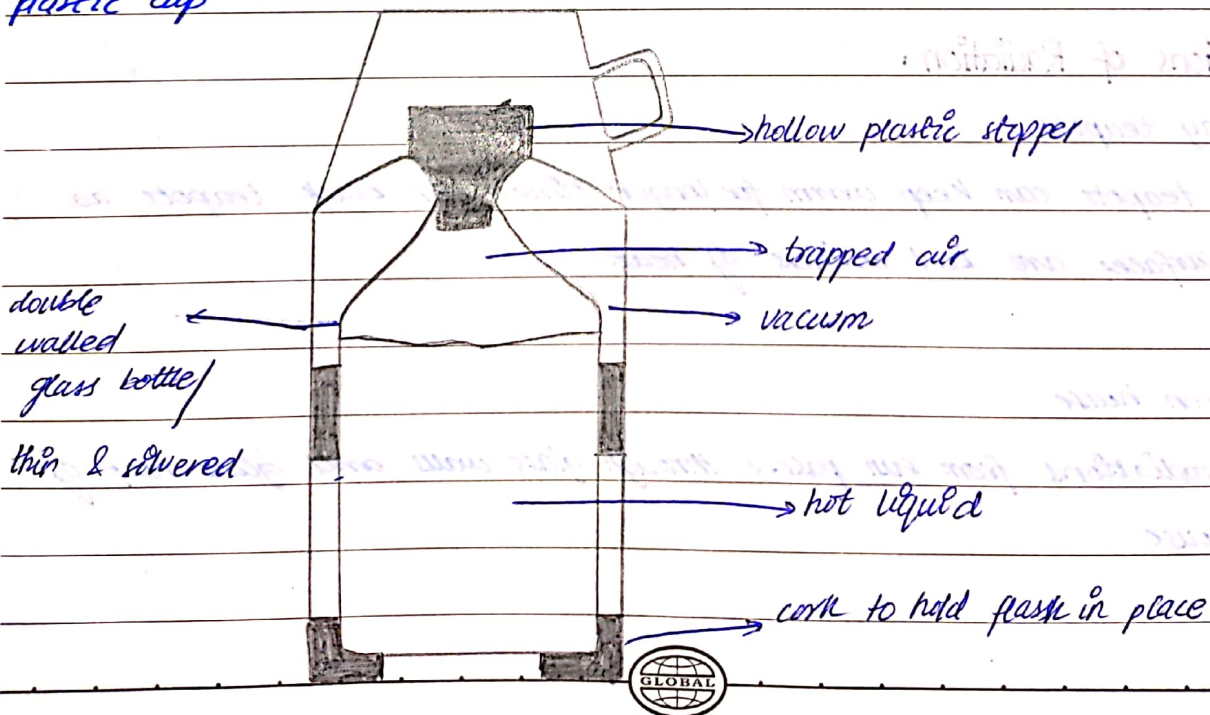 plastic cup
hollow plastic stopper
trapped air
vacuum
double
walled
glass bottle/
thin & silvered
hot liquid
cork to hold flask in place
GLOBAL